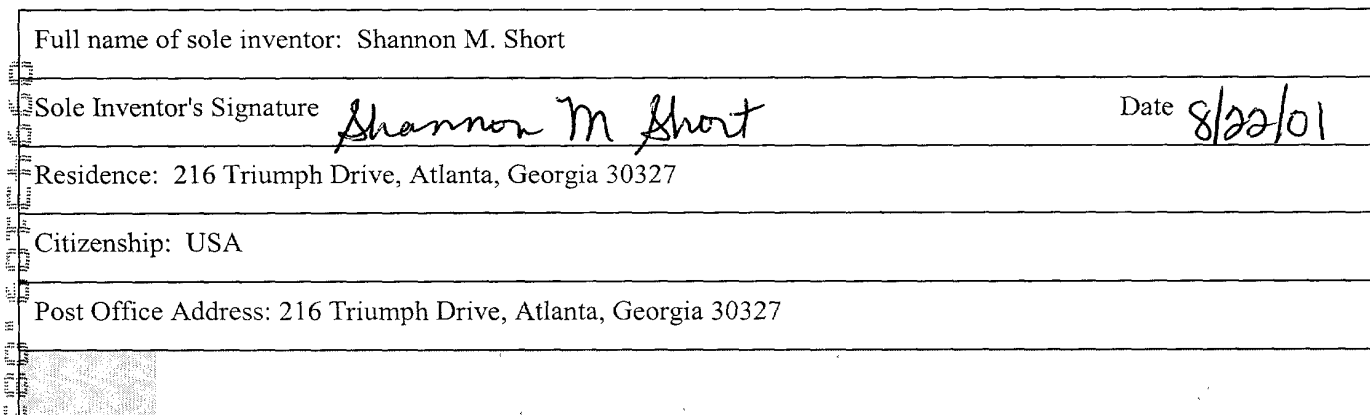 Full name of sole inventor: Shannon M. Short
Sole Inventor's Signature Shannon M Short Date 8/22/01
Residence: 216 Triumph Drive, Atlanta, Georgia 30327
Citizenship: USA
Post Office Address: 216 Triumph Drive, Atlanta, Georgia 30327